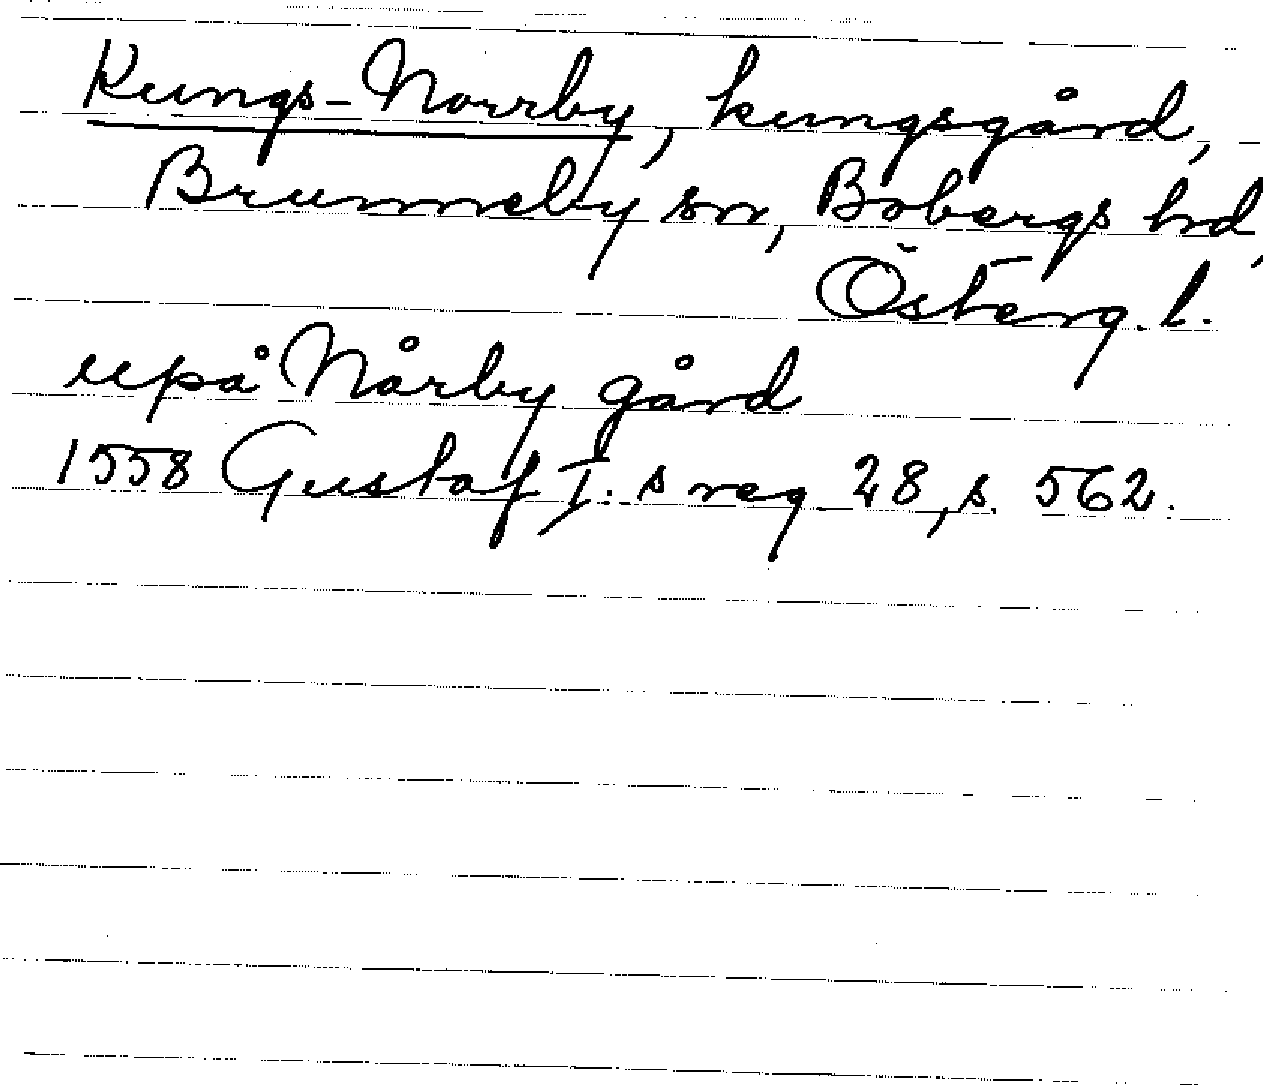 Kungs-Norrby, kungsgård,
Brunneby sn, Bobergs hd,
Österg. l.
uppå Nårby gård
1558 Gustaf I.s reg 28, s. 562.